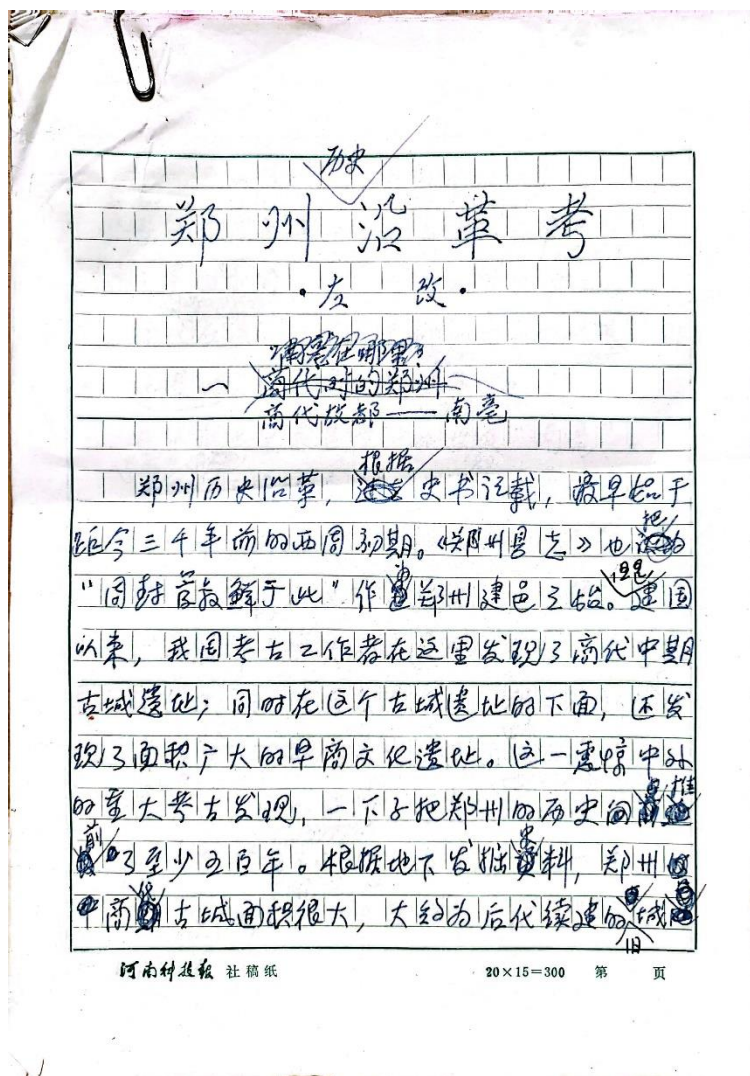 历史
郑州沿革考
·左 改·
“南亳在哪里”
一 商代时的郑州
商代故都——南亳
根据
郑州历史沿革，史书记载，最早始于
距今三千年前的西周初期。《郑州县志》也把
“周封管叔鲜于此”作为郑州建邑之始。但是建国
以来，我国考古工作者在这里发现了商代中期
古城遗址；同时在这个古城遗址的下面，还发
现了面积广大的早商文化遗址。这一震惊中外
的重大考古发现，一下子把郑州的历史向前推
前了至少五百年。根据地下发掘史料，郑州
中商古城面积很大，大约为后代续建的旧城
河南科技报 社稿纸 20×15=300 第 页